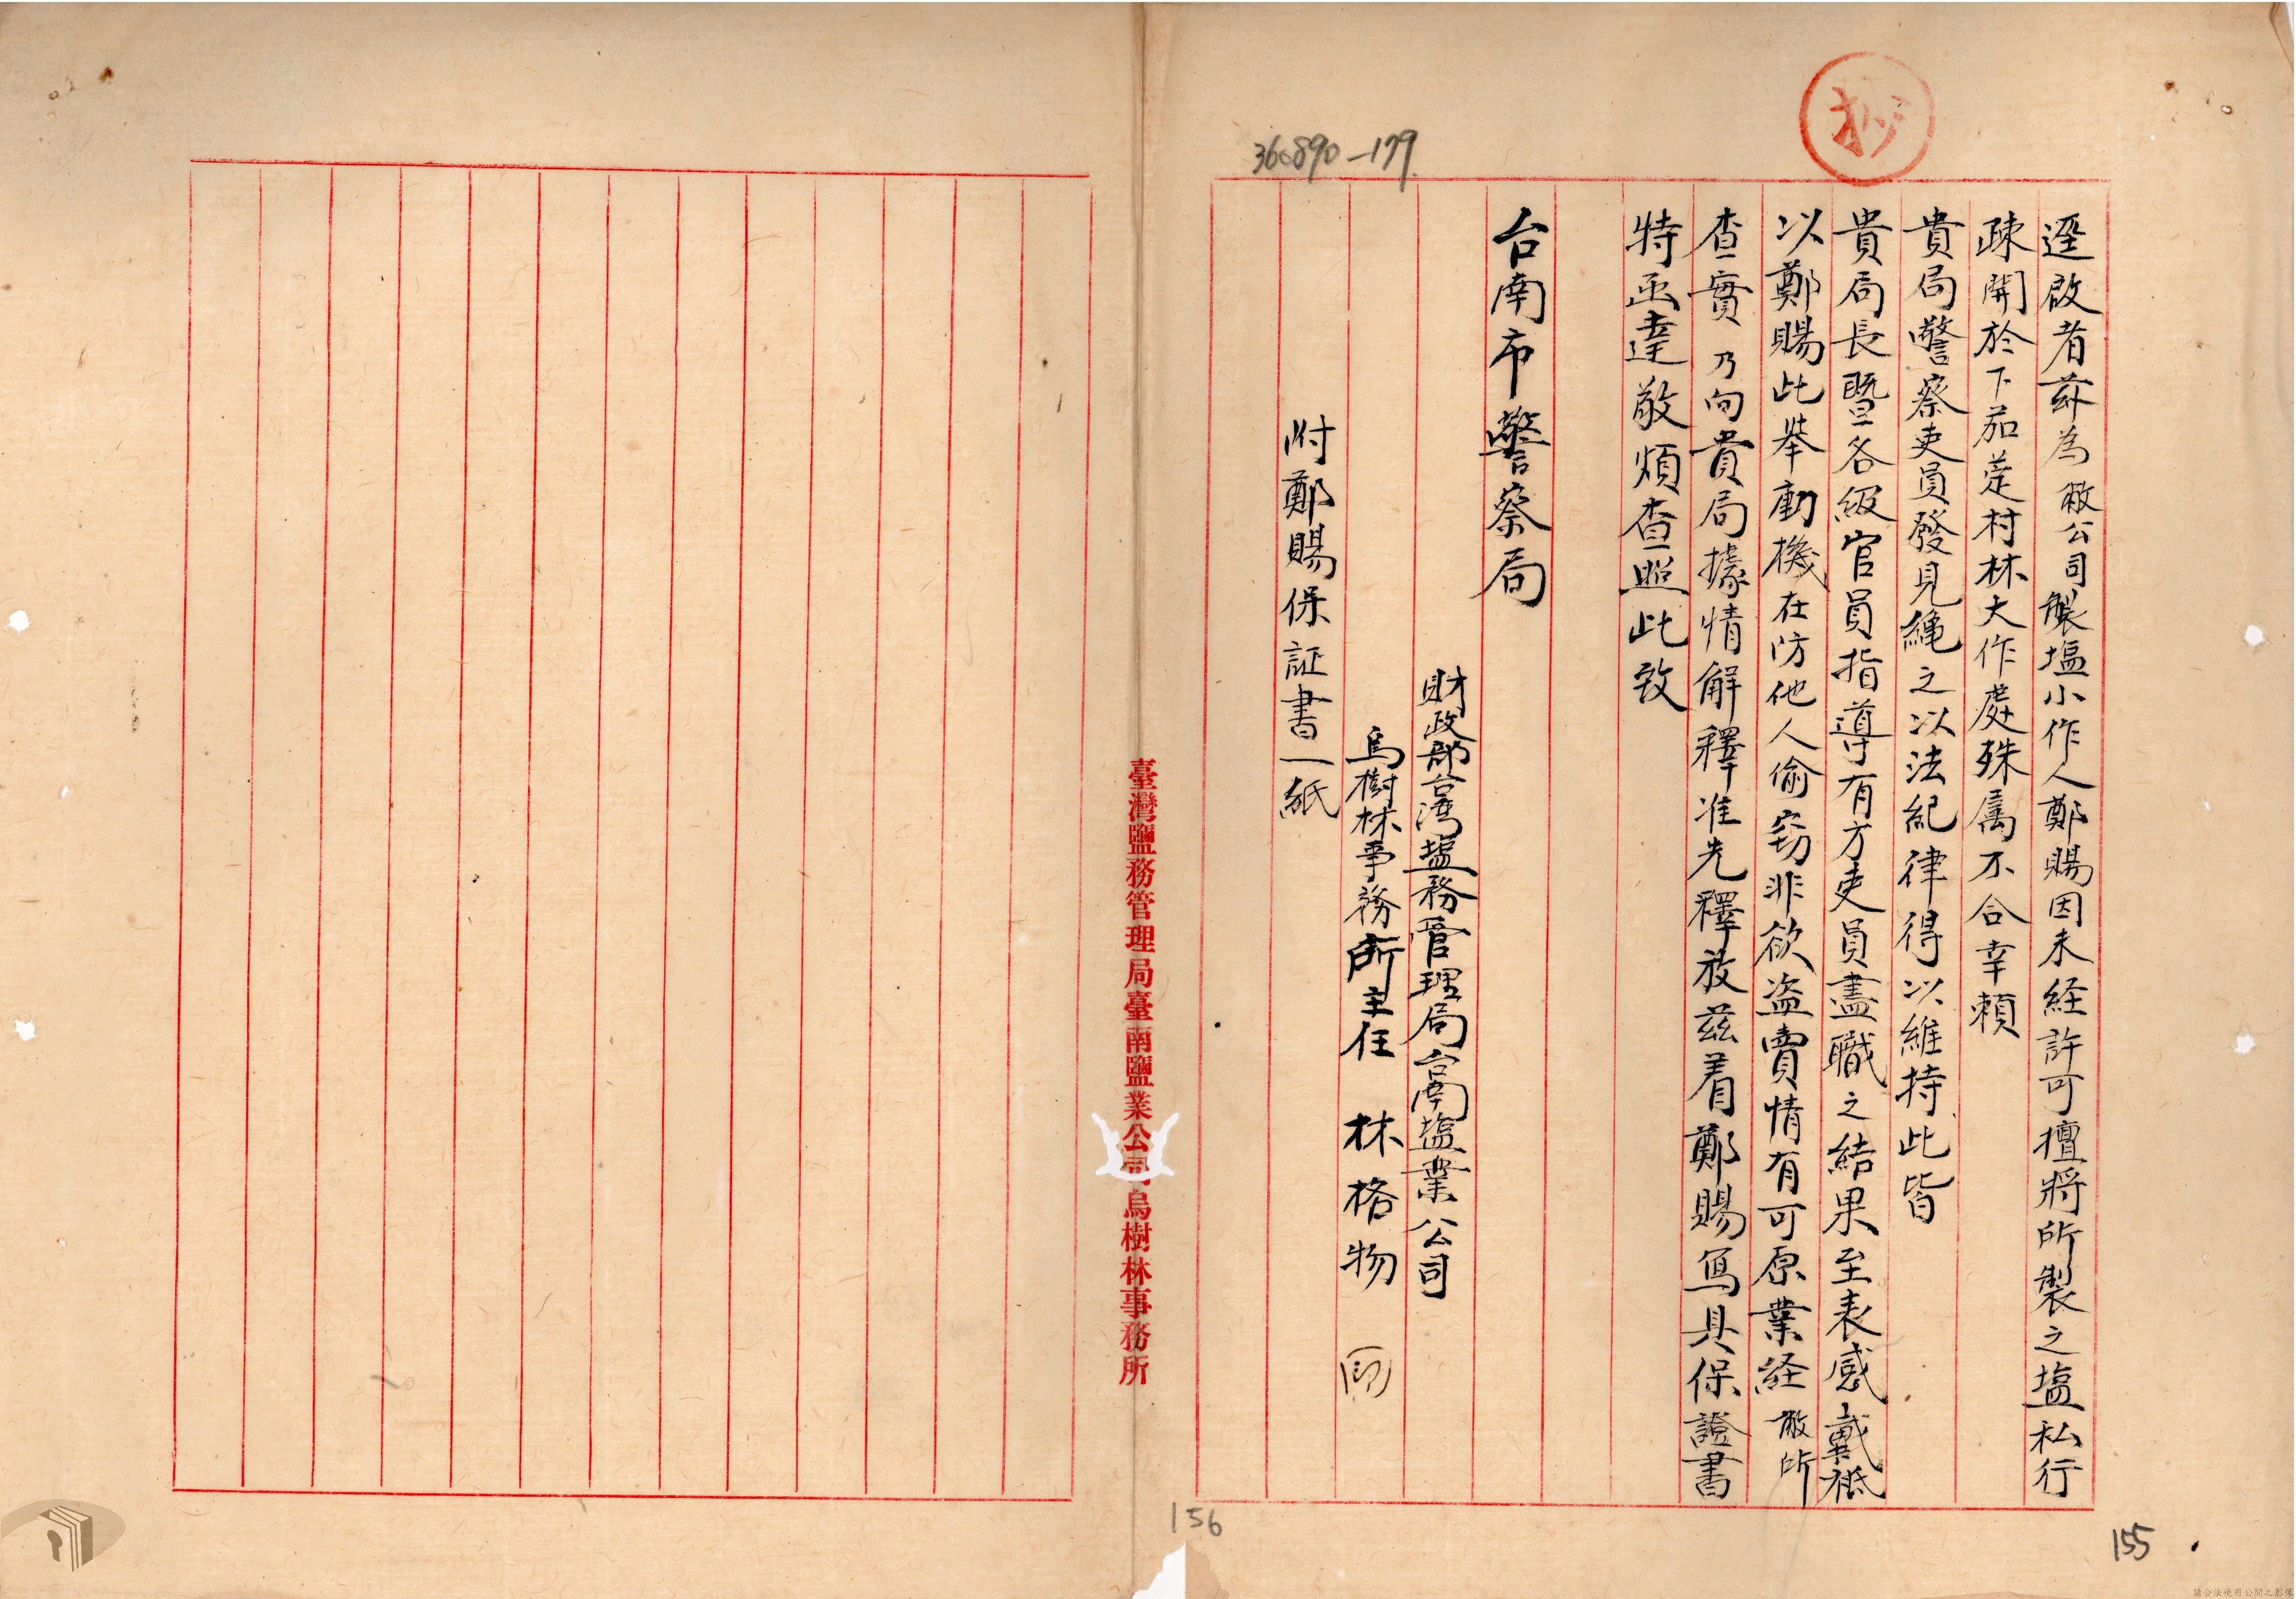 抄
36.890-179
逕啟者茲為敝公司製塩小作人鄭賜因未経許可擅將所製之塩私行
疎開於下茄萣村林大作處殊属不合幸賴
貴局警察吏員發見繩之以法紀律得以維持此皆
貴局長暨各級官員指導有方吏員盡職之結果至表感戴祗
以鄭賜此举動機在防他人偷窃非欲盗賣情有可原業経敝所
查實乃向貴局據情解釋准先釋放茲着鄭賜寫具保證書
特函達敬煩查照此致
台南市警察局
財政部台湾塩務管理局台南塩業公司
烏樹林事務所主任 林格物 印
附鄭賜保証書一紙
臺灣鹽務管理局臺南鹽業公司烏樹林事務所
156
155
請合法使用公開之影像